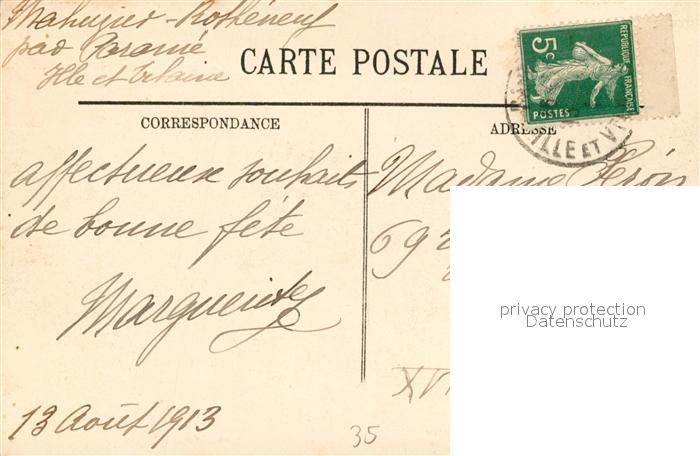 Mahuzier - Rothéneuf
par Paramé
Ille et Vilaine
CARTE POSTALE
5c
REPUBLIQUE FRANÇAISE
POSTES
ILLE ET
CORRESPONDANCE
ADRESSE
affectueux souhaits
de bonne fête
Marguerite
13 Août 1913
Madame
69
XVI
35
privacy protection
Datenschutz